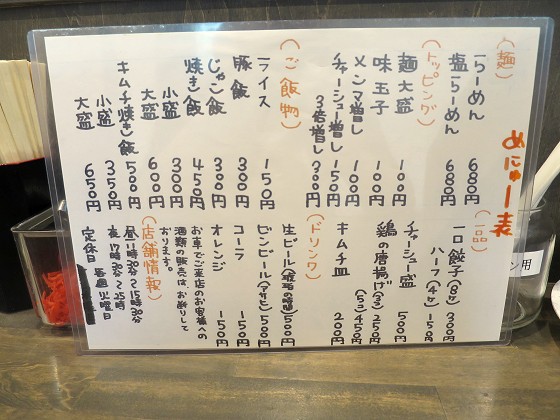 めにゅー表
（麺）
らーめん 680円
塩らーめん 680円
（トッピング）
麺大盛 100円
味玉子 100円
メンマ増し 100円
チャーシュー増し 150円
3倍増し 300円
（ご飯物）
ライス 150円
豚飯 300円
じゃこ飯 300円
焼き飯 450円
小盛 300円
大盛 600円
キムチ焼き飯 500円
小盛 350円
大盛 650円
（一品）
一口餃子（8ケ）300円
ハーフ（4ケ）150円
チャーシュー盛 500円
鶏の唐揚げ（3コ）250円
（5コ）450円
キムチ皿 200円
（ドリンク）
生ビール（琥珀の時間）500円
ビンビール（アサヒ）500円
コーラ 150円
オレンジ 150円
お車でご来店のお客様への
酒類の販売はお断りして
おります。
（店舗情報）
昼11時30分〜15時30分
夜17時30分〜25時
定休日 毎週火曜日
ン用